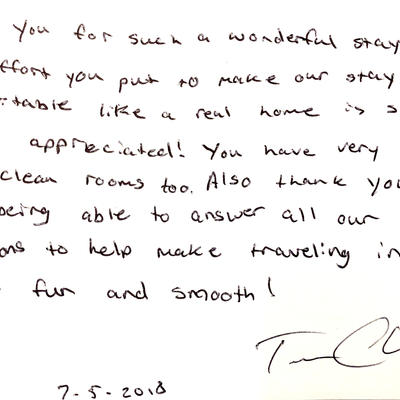 you for such a wonderful stay
ffort you put to make our stay
table like a real home is s
appreciated! You have very
clean rooms too. Also thank you
being able to answer all our
ons to help make traveling in
fun and smooth!
7-5-2018